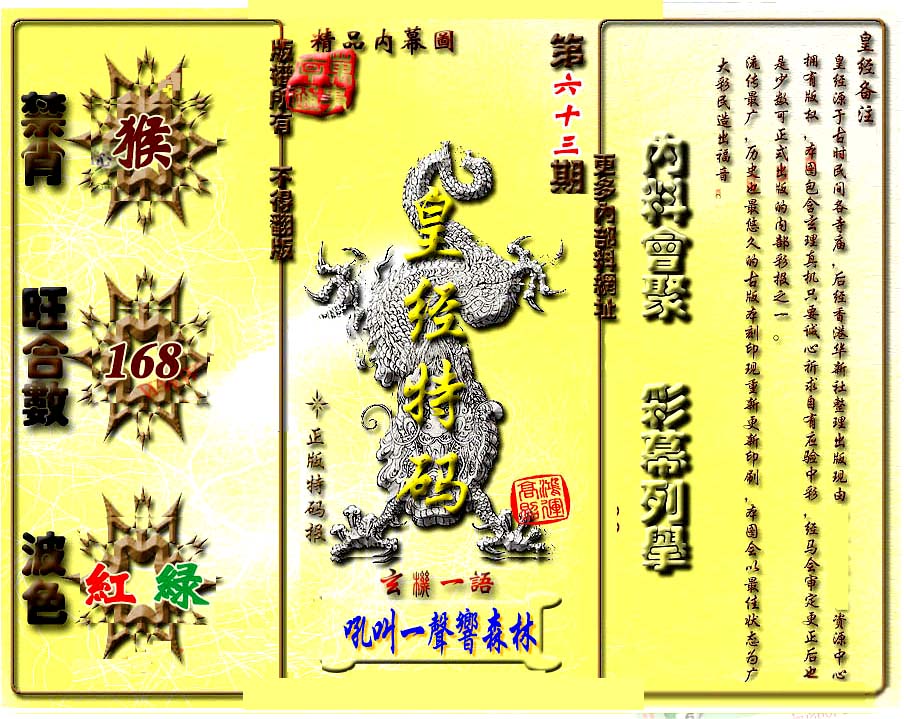 精品内幕圖
第六十三期
版權所有 不得翻版
更多内部料網址
禁肖
猴
旺合數
168
波色
紅 綠
皇经特码
正版特码报
鴻運
高照
玄機一語
吼叫一聲響森林
内料會聚
彩幕列舉
皇经备注
皇经源于古时民间各寺庙，后经香港华新社整理出版现由 资源中心
拥有版权，本图包含玄理真机只要诚心祈求自有应验中彩，经马会审定更正后也
是少数可正式出版的内部彩报之一。
流传最广，历史也最悠久的古版本刻印现重新更新印刷，本图会以最佳状态为广
大彩民造出福音